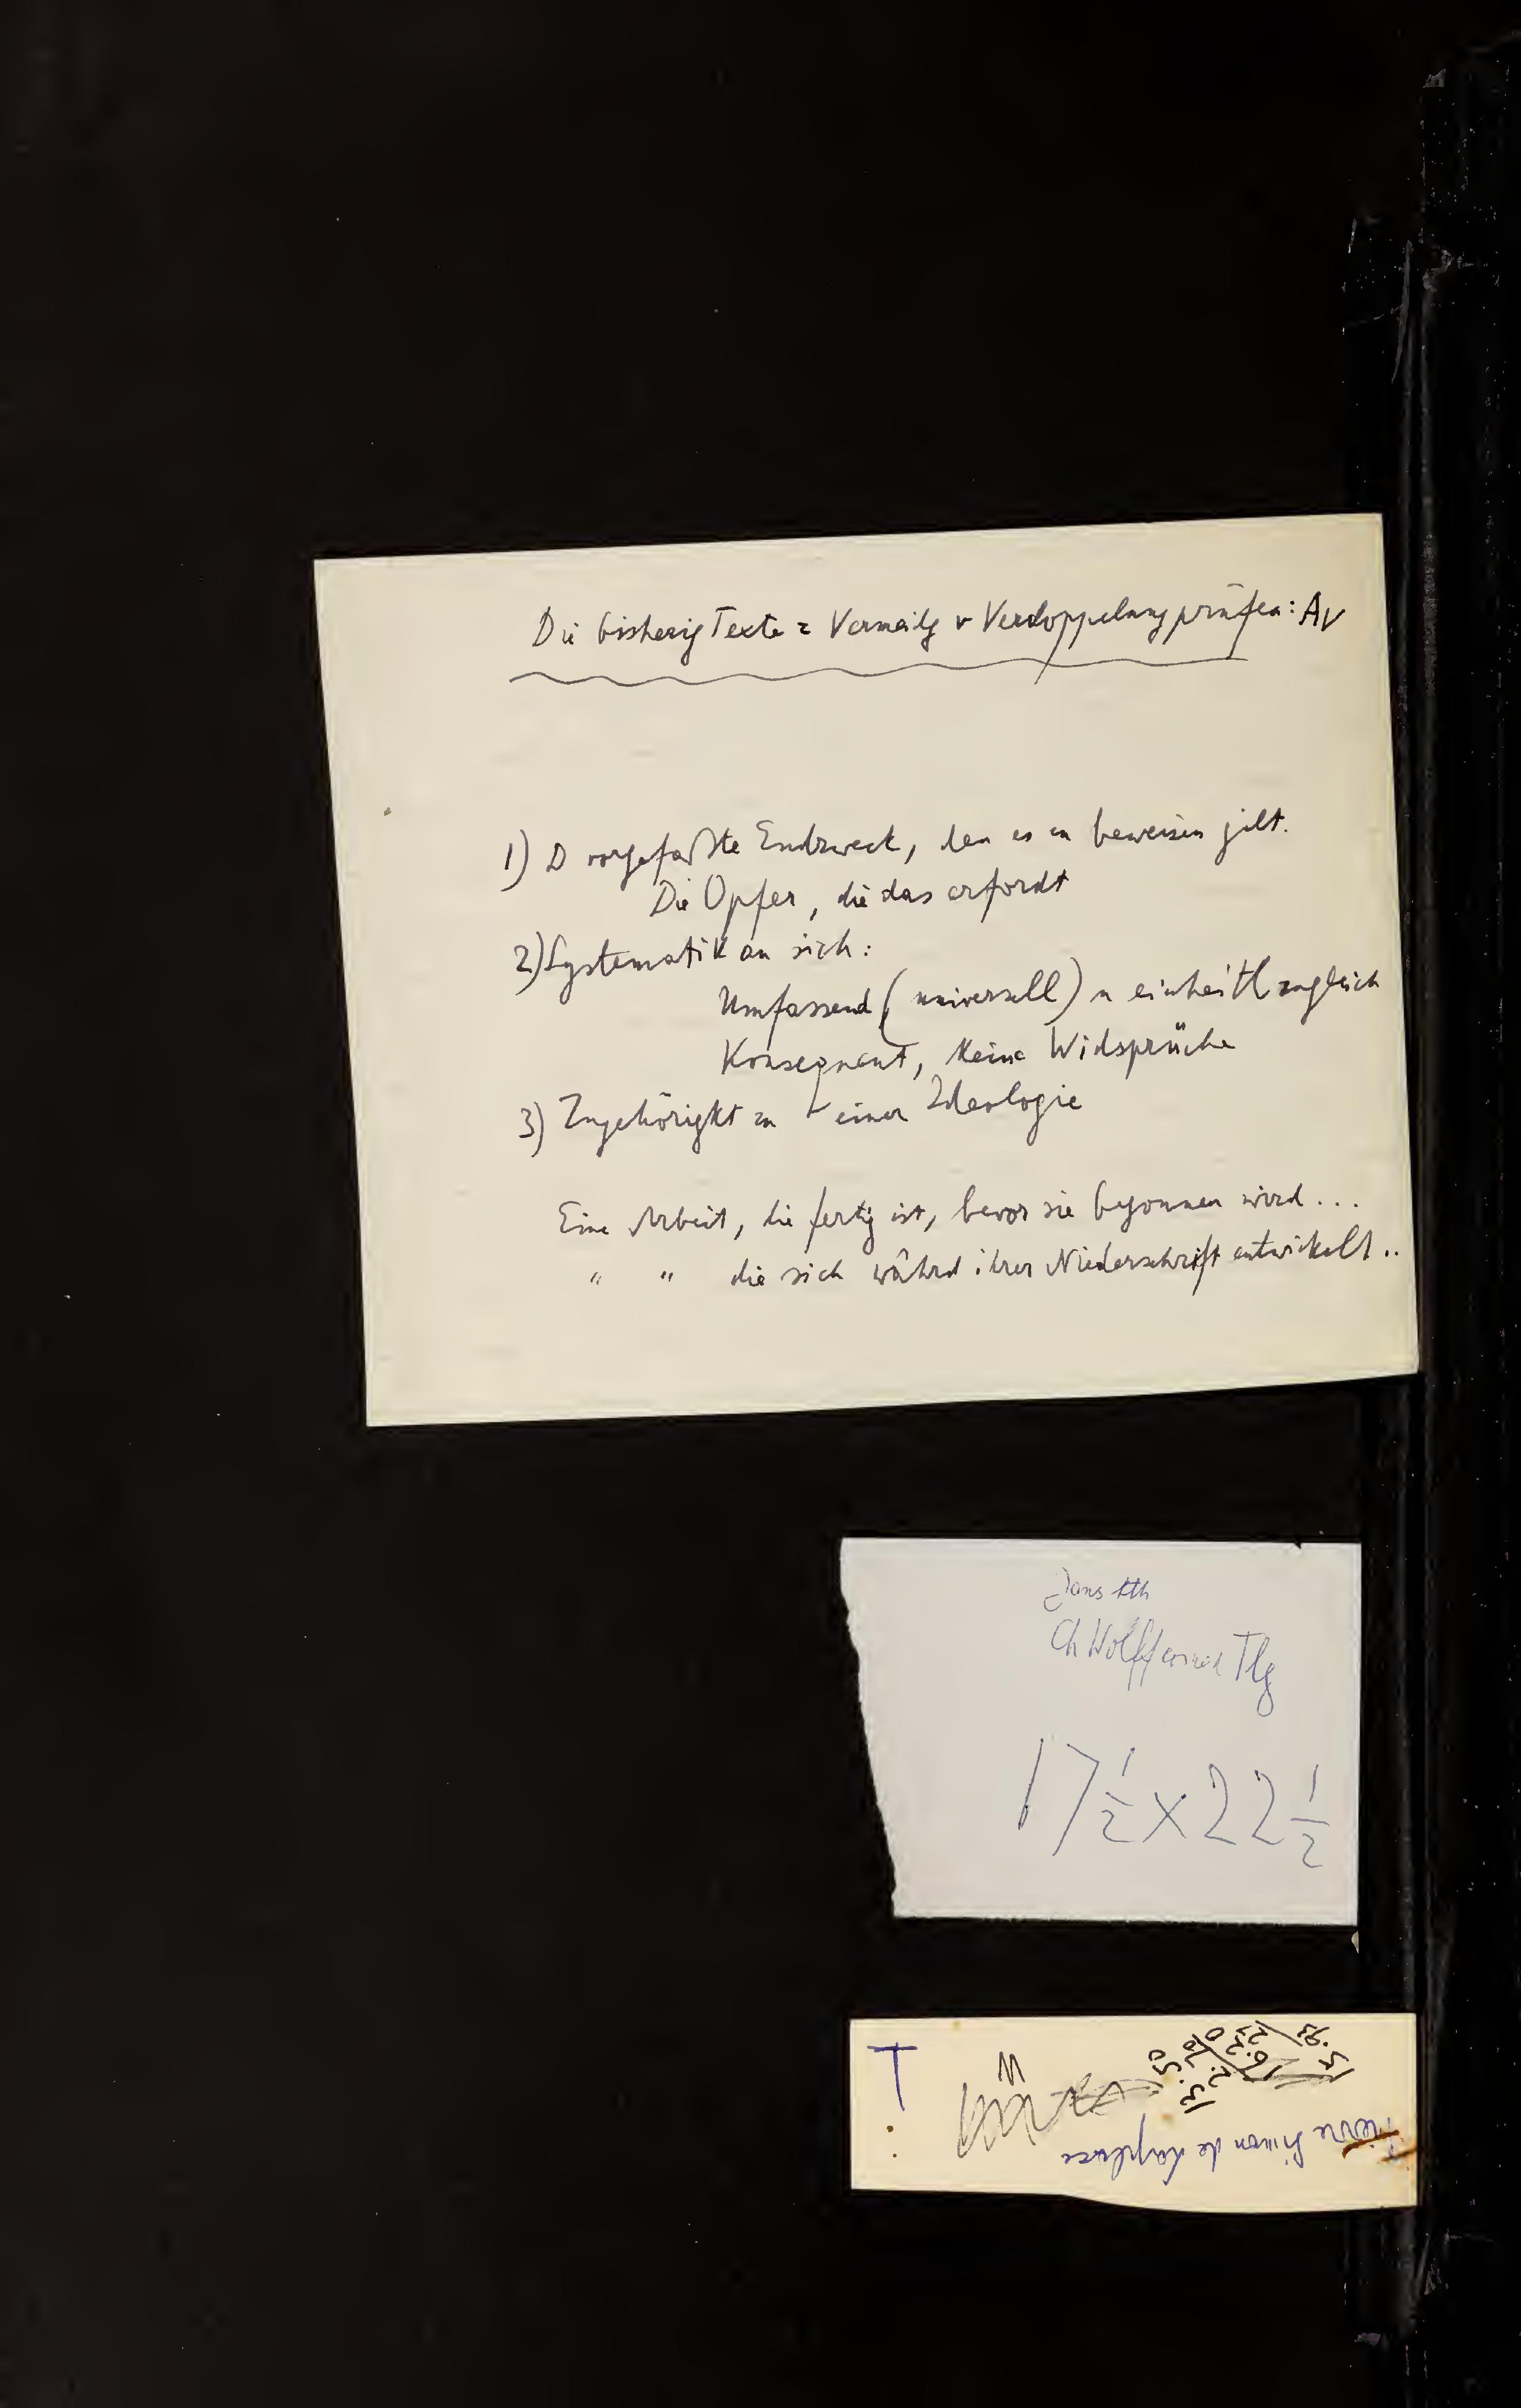 Die bisherig Texte z Vermeidg v Verdoppelung prüfen: AV
1) D vorgefaßte Endzweck, den es zu beweisen gilt.
Die Opfer, die das erfordt
2) Systematik an sich:
Umfassend (universell) u einheitl zugleich
Konsequent, keine Widsprüche
3) Zugehörigkt zu einer Ideologie
Eine Arbeit, die fertig ist, bevor sie begonnen wird ...
" " die sich währd ihrer Niederschrift entwickelt ..
Ch Wolff Tlg
17 1/2 x 22 1/2
T
Pierre Simon de Laplace